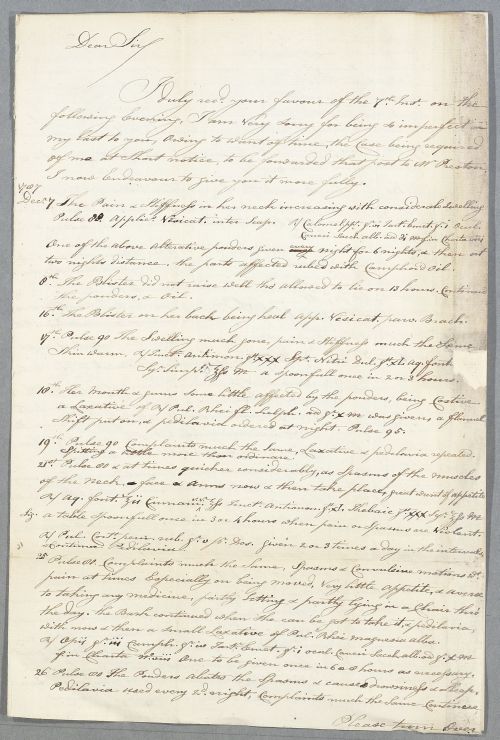 Dear Sir
I duly recd. your favour of the 7th. Inst. on the
following Evening, I am very sorry for being so imperfect in
my last to you, Owing to want of time, the Case being required
of me at short notice, to be forwarded that post to Mr. Preston,
I now endeavour to give it more fully.
1787
Decr. 7 The Pain & Stiffness in her neck increasing with considerable Swelling
Pulse 88. Applic. Vesicat. inter Scap.
One of the above Alterative powders given every night for 6 nights, & then at
two nights distance. the parts affected rubed with Camphor'd Oil.
8th. The Blister did not raise well tho allowed to lie on 18 hours. Continued
the powders, & Oil.
16th. The Blister on her back being heal'd App. Vesicat. parv. Brach.
17th. Pulse 90 The Swelling much gone, pain & Stiffness much the Same
Skin warm. Antimon. gtt xxx Spt. Nitri Dul. Aq. font
Syr. Simpl. M a spoonfull once in 2 or 3 hours.
18th. Her Mouth & gums Some little affected by the powders, being Costive
a Laxative of Pul. Rhei Sulph. M was given, a flannel
Shift put on, & pedilavia ordered at night. Pulse 95.
19th. Pulse 90 Complaints much the Same, Laxative & pedilavia repeated.
Spitting a little more than ordinary.
21st. Pulse 80 & at times quicker considerably, as Spasms of the muscles
of the Neck, face & Arms now & then take place, great want of appetite
Aq. font. Cinnam. Tinct. Antimon. Thebaic Syr. M
a table spoonfull once in 3 or 4 hours when pain or Spasms are Violent.
Pul. Cort. peru. rub. Dos. given 2 or 3 times a day in the intervals,
Continued Pedilavia
25 Pulse 88. Complaints much the Same, Spasms & Convulsive motions &
pain at times Especially on being moved, Very little Appetite, & averse
to taking any medicine, partly Setting & partly lying in a Chair thro
the day. the Bark continued when She can be got to take it, & pedilavia,
with now & then a small Laxative of Pul. Rhei magnesia alba.
Opii gr. iii Camph. M
One to be given once in 6 or 8 hours as necessary.
26 Pulse 88 The Powders abates the Spasms & cause drowsiness & sleep,
Pedilavia used every 2d. night, Complaints much the Same Continue
Please turn Over